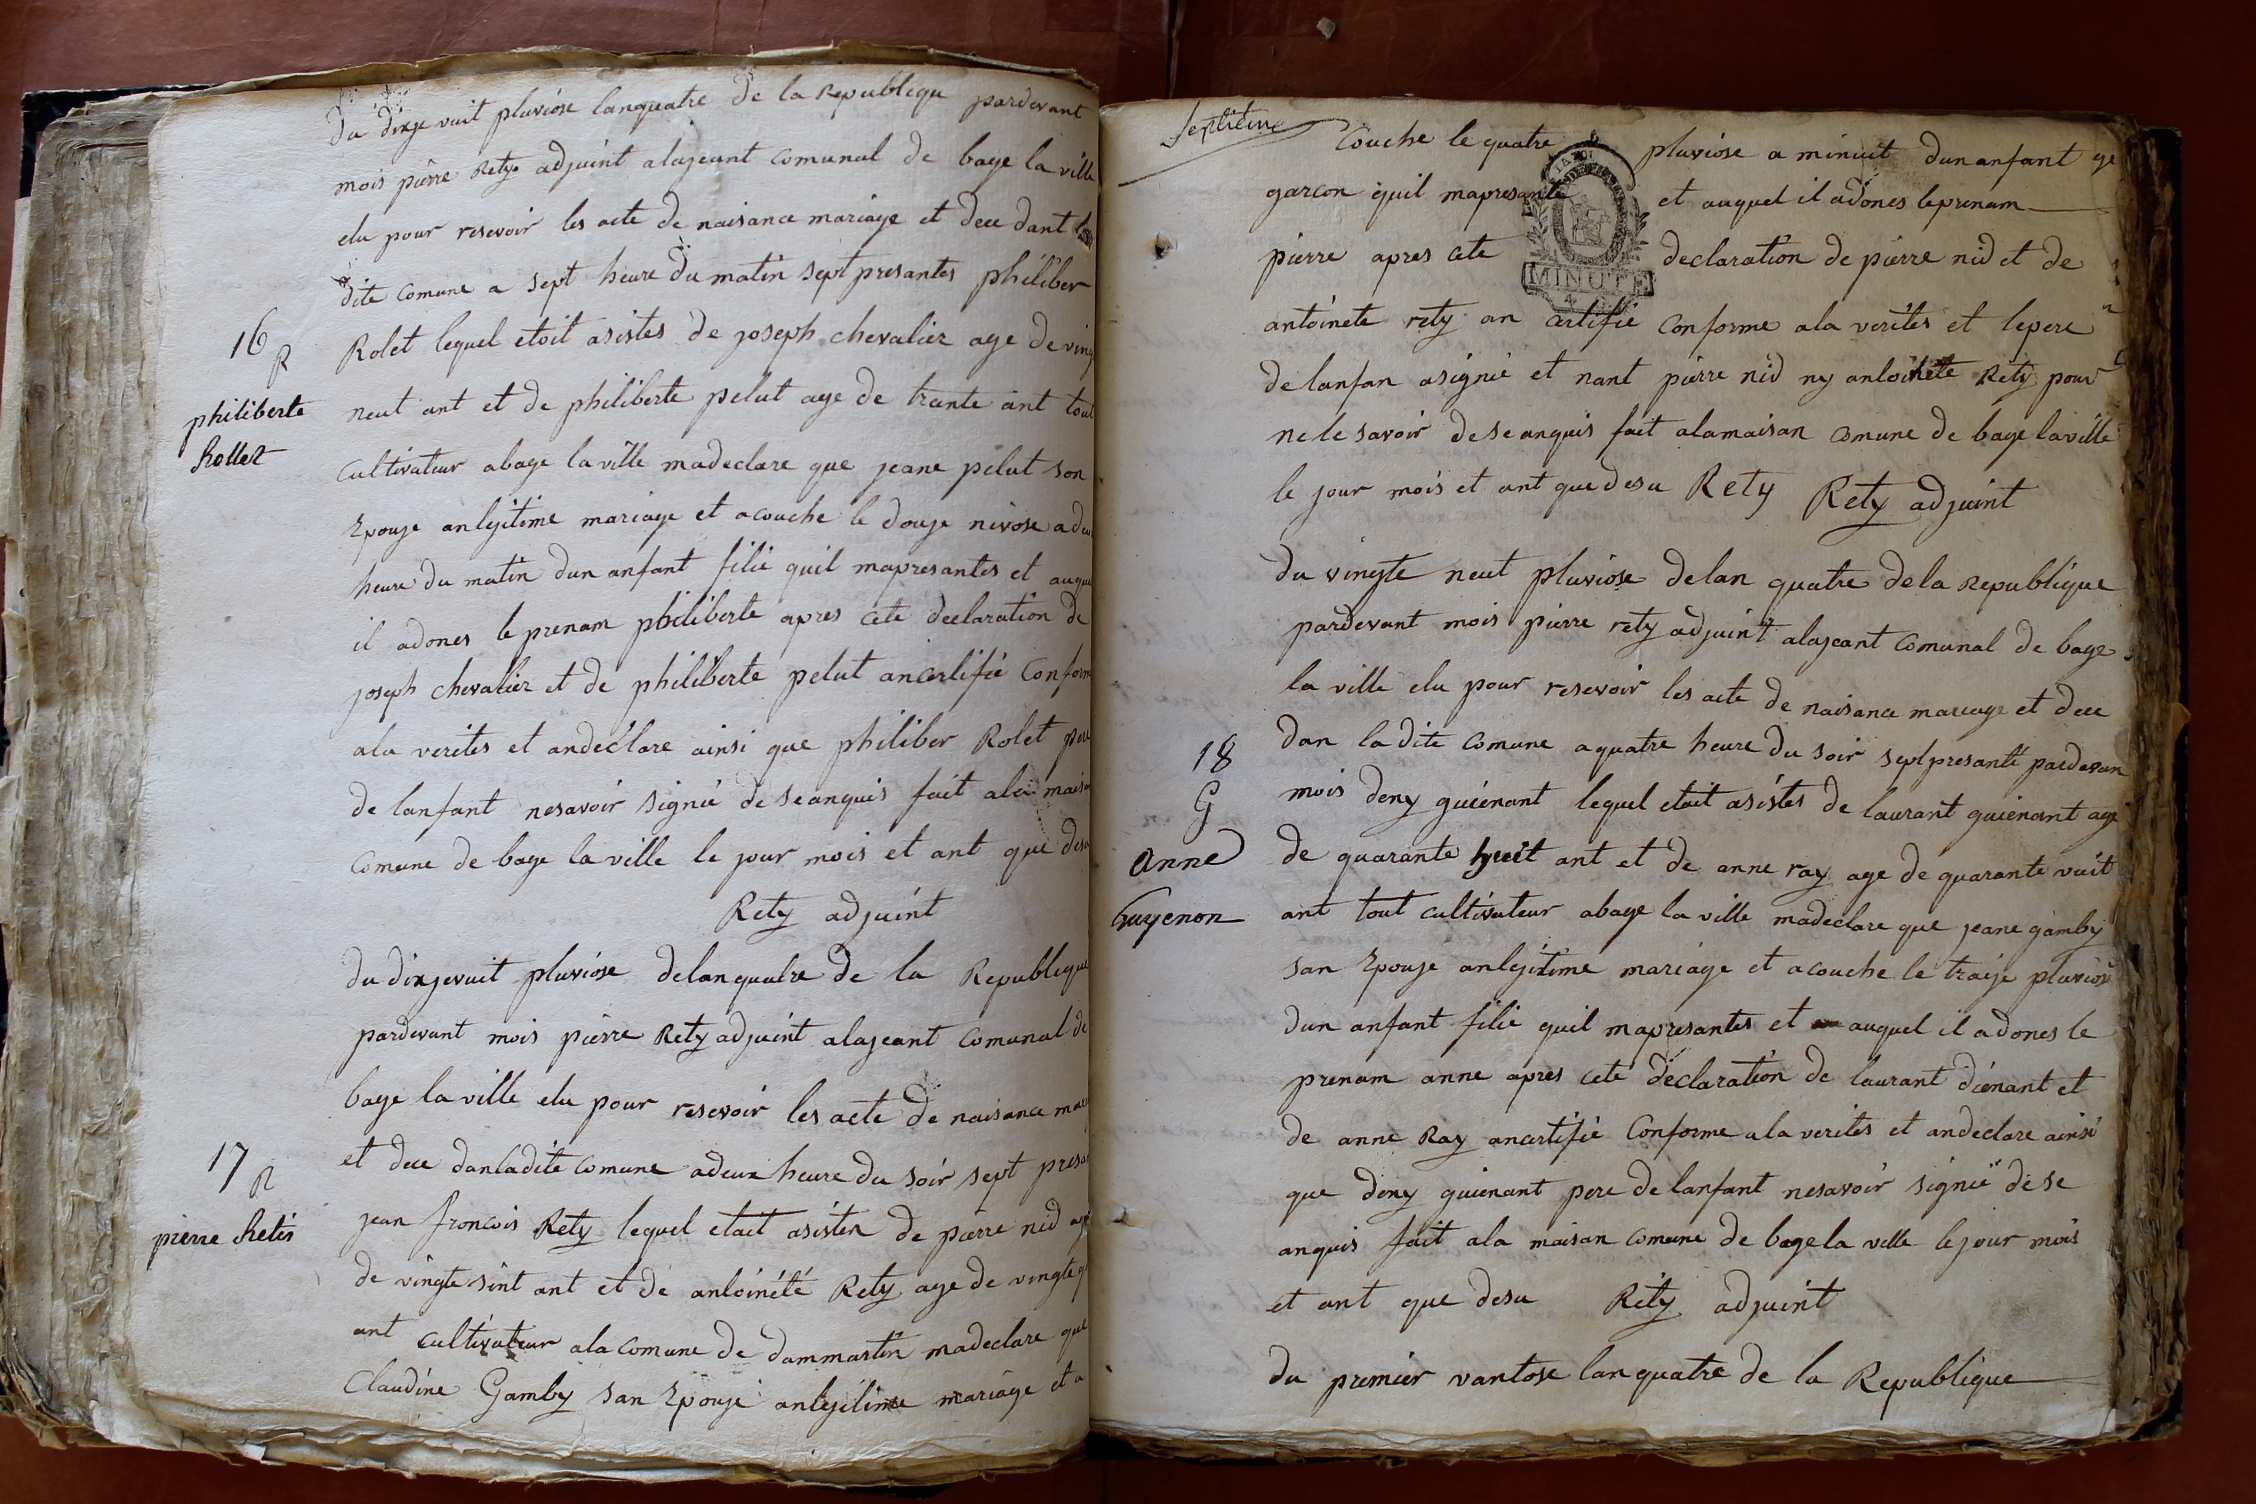 du dixje vuit pluviose lanquatre de la Republique pardevant
mois pierre Rety adjuint alajeant comunal de bage la ville
elu pour resevoir les acte de naisance mariage et dece dant la
dite comune a sept heure du matin sept presantes philiber
16
R
Rolet lequel etoit asistes de joseph chevalier age de ving
philiberte
Rollet
neut ant et de philiberte pelut age de trante ant tout
cultivateur abage la ville madeclare que jeane pelut son
Epouze anlejitime mariage et acouche le douze nivose adeu
heure du matin dun anfant filie quil mapresantes et auque
il adones le prenam philiberte apres cete declaration de
joseph chevalier et de philiberte pelut ancertifie Conform
ala verites et andeclare ainsi que philiber Rolet pere
de lanfant nesavoir signie de seanquis fait ala maiso
comune de bage la ville le jour mois et ant que desu
Rety adjuint
du dixjevuit pluviose delanquatre de la Republique
pardevant mois pierre Rety adjuint alajeant Comunal de
bage la ville elu pour resevoir les acte de naisance mar
17
R
pierre Retis
et dece danladite comune adeux heure du soir sept presan
jean francois Rety lequel etait asister de pierre nid age
de vingte sint ant et de antoinété Rety age de vingte q
ant cultivateur ala comune de dammartin madeclare que
Claudine Gamby san Epouje anlejitime mariage et a
septieme
Couche le quatre pluviose a minuit dun anfant ge
garcon quil mapresante et auquel il adones leprenam
MINUTE
pierre apres cete declaration de pierre nid et de
antoinete rety an certifie conforme ala verites et lepere
de lanfan asignie et nant pierre nid ny antoinete Rety pour
nele savoir de seanquis fait alamaisan comune de bage laville
le jour mois et ant que desu Rety Rety adjuint
du vingte neut pluviose delan quatre de la Republique
pardevant mois pierre rety adjuint alajeant comunal de bage
la ville elu pour resevoir les acte de naisance mareage et dece
18
G
Anne
Guyenon
dan la dite comune aquatre heure du soir sept presante pardevan
mois deny guienant lequel etait asistes de laurant guienant age
de quarante huit ant et de anne ray age de quarante vuit
ant tout cultivateur abage la ville madeclare que jeane gamby
san Epouje anlejitime mariage et acouche le traije pluvios
dun anfant filie quil mapresantes et auquel il adones le
prenam anne apres cete declaration de laurant diénant et
de anne Ray ancertifie Conforme ala verites et andeclare ainsi
que deny guienant pere delanfant nesavoir signie de se
anquis fait ala maisan comune de bage la ville le jour mois
et ant que desu Rety adjuint
du premier vantose lanquatre de la Republique